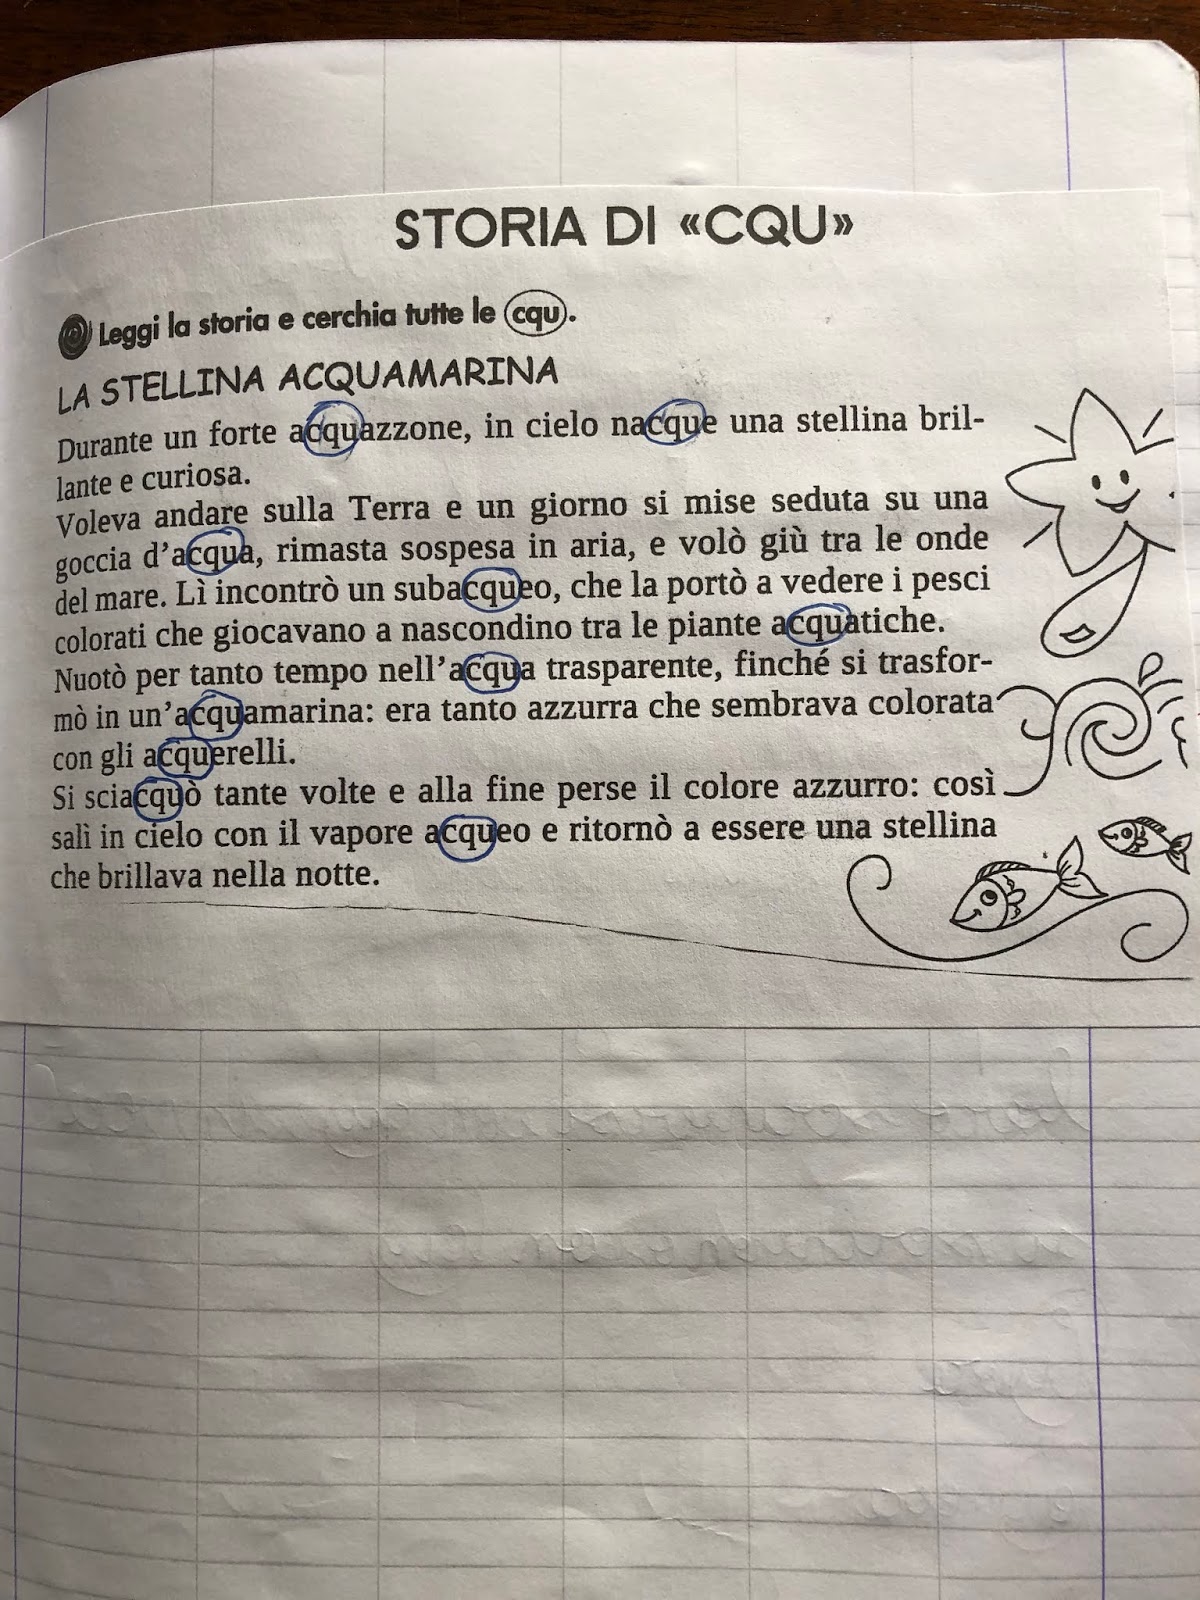 STORIA DI «CQU»
Leggi la storia e cerchia tutte le cqu.
LA STELLINA ACQUAMARINA
Durante un forte acquazzone, in cielo nacque una stellina bril-
lante e curiosa.
Voleva andare sulla Terra e un giorno si mise seduta su una
goccia d'acqua, rimasta sospesa in aria, e volò giù tra le onde
del mare. Lì incontrò un subacqueo, che la portò a vedere i pesci
colorati che giocavano a nascondino tra le piante acquatiche.
Nuotò per tanto tempo nell'acqua trasparente, finché si trasfor-
mò in un'acquamarina: era tanto azzurra che sembrava colorata
con gli acquerelli.
Si sciacquò tante volte e alla fine perse il colore azzurro: così
salì in cielo con il vapore acqueo e ritornò a essere una stellina
che brillava nella notte.